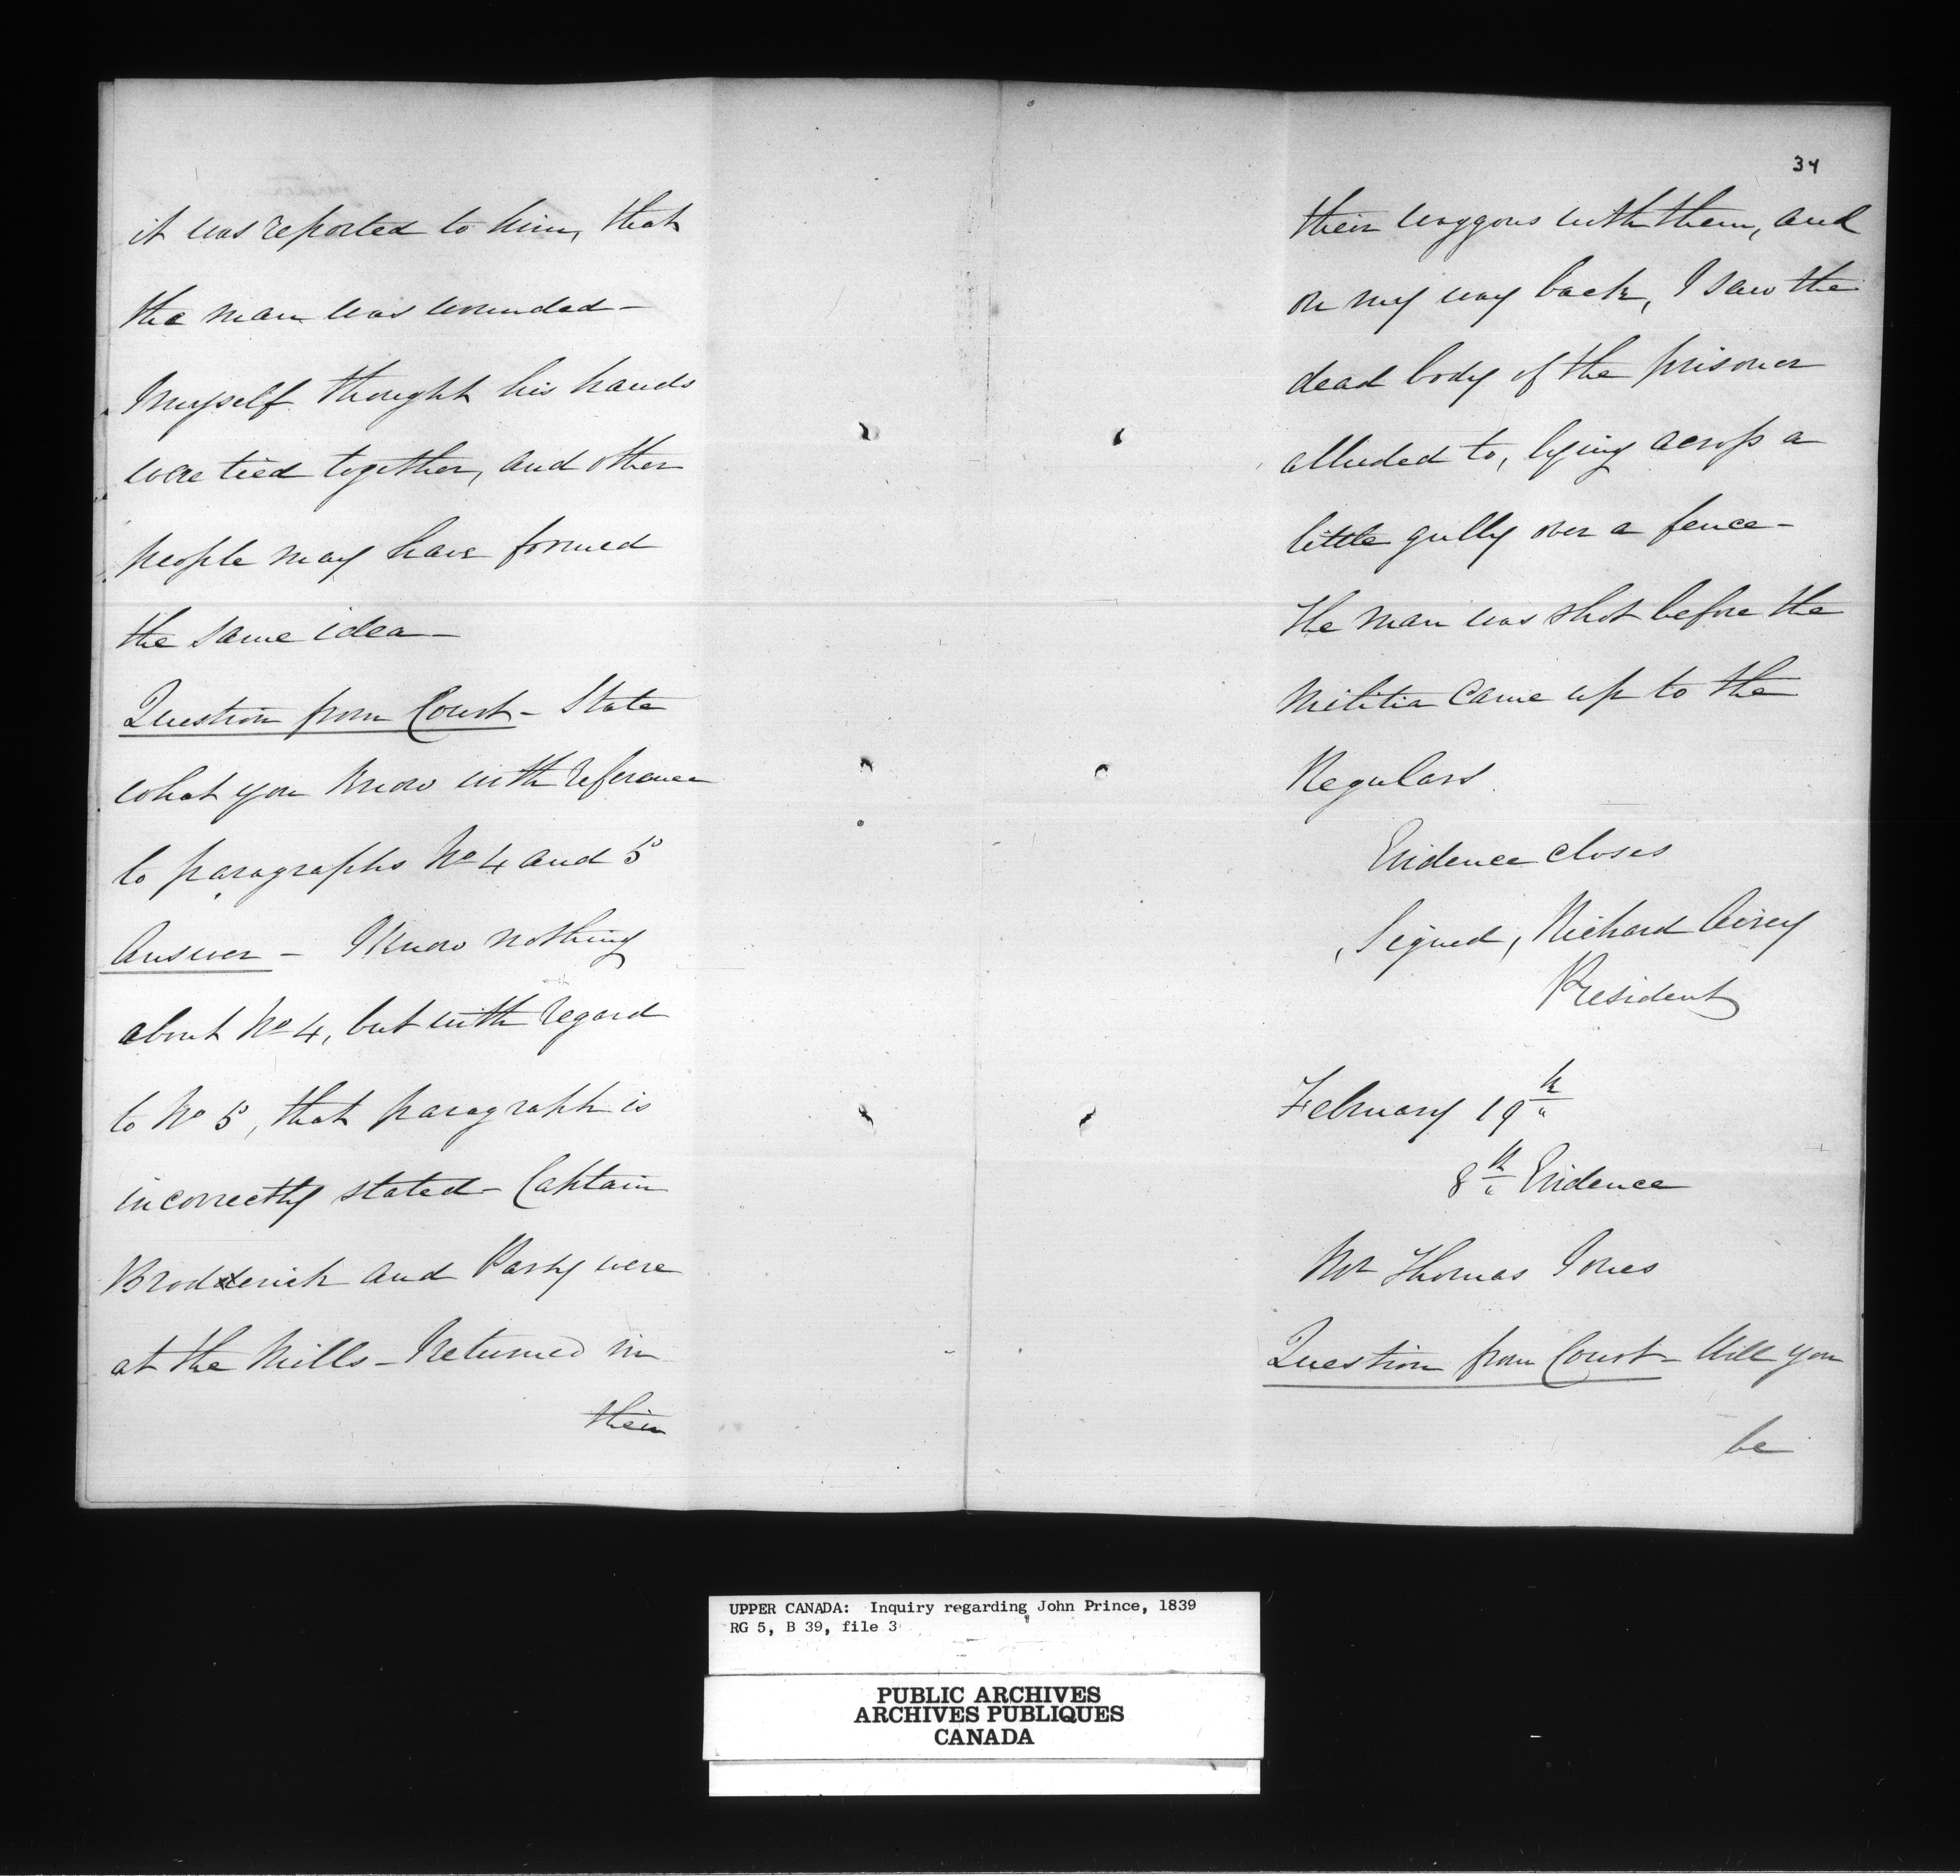 it was reported to him, that
the man was wounded -
I myself thought his hands
were tied together, and other
people may have formed
the same idea -
Question from Court - State
what you know with reference
to paragraphs No 4 and 5
Answer - I know nothing
about No 4, but with regard
to No 5, that paragraph is
incorrectly stated - Captain
Broderick and Party were
at the Mills - I returned in
their
34
their waggons with them, and
on my way back, I saw the
dead body of the prisoner
alluded to, lying across a
little gully over a fence -
The man was shot before the
Militia came up to the
Regulars
Evidence closes
Signed, Richard Airey
President
February 19th
8th Evidence
Mr Thomas Jones
Question from Court - Will you
be
UPPER CANADA: Inquiry regarding John Prince, 1839
RG 5, B 39, file 3
PUBLIC ARCHIVES
ARCHIVES PUBLIQUES
CANADA